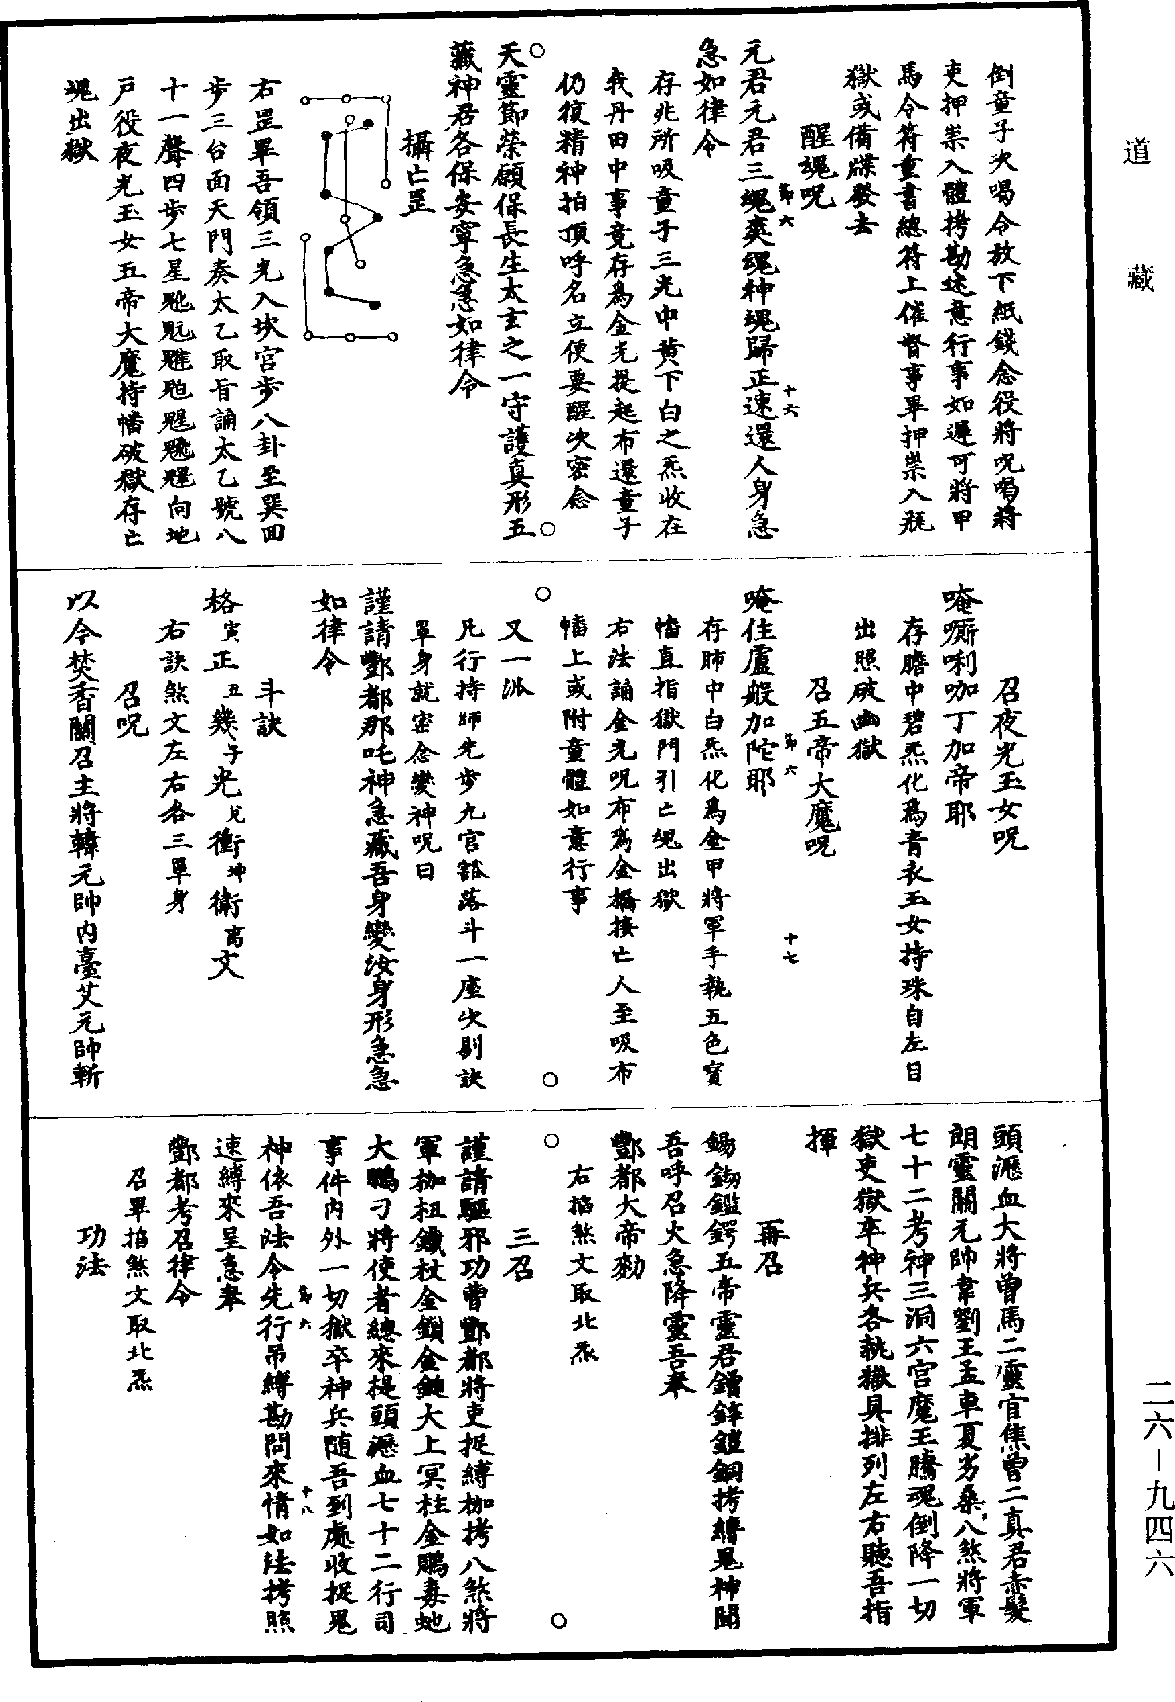 道藏
倒童子次喝令放下紙錢念役將咒喝將
吏押祟入體拷勘述意行事如遲可將甲
馬令符重書總符上催督事畢押祟入瓶
獄或備牒發去
醒魂咒
元君元君三魂爽魂神魂歸正速還人身急
急如律令
存兆所吸童子三光中黄下白之炁收在
我丹田中事竟存為金光提起布還童子
仍復精神拍頂呼名立便要醒次密念
天靈節榮願保長生太玄之一守護真形五
藏神君各保安寧急急如律令
攝亡罡
右罡畢吾領三光入坎宮步八卦至巽回
步三台面天門奏太乙取旨誦太乙號八
十一聲四步七星向地
戶役夜光玉女五帝大魔持幡破獄存亡
魂出獄
召夜光玉女咒
唵嘶唎咖丁加帝耶
存膽中碧炁化為青衣玉女持珠自左目
出照破幽獄
召五帝大魔咒
唵住盧般加陀耶
存肺中白炁化為金甲將軍手執五色寶
幡直指獄門引亡魂出獄
右法誦金光咒布為金橋接亡人至吸布
幡上或附童體如意行事
又一派
凡行持師先步九宮豁落斗一座次剔訣
單身就密念變神咒曰
謹請酆都那吒神急藏吾身變汝身形急急
如律令
斗訣
格寅正丑幾子光兌衝坤衛离文
右訣煞文左右各三單身
召咒
以令焚香關召主將韓元帥內臺艾元帥斬
頭瀝血大將曾馬二靈官焦曾二真君赤髮
朗靈關元帥韋劉王孟車夏芳桑八煞將軍
七十二考神三洞六宮魔王騰魂倒降一切
獄吏獄卒神兵各執獄具排列左右聽吾指
揮
再召
五帝靈君拷縛鬼神聞
吾呼召火急降靈吾奉
酆都大帝勑
右掐煞文取北炁
三召
謹請驅邪功曹酆都將吏捉縛枷拷八煞將
軍枷杻鐵杖金鎖金鏈大上冥柱金鵰毒虵
大鵬刁將使者總來提頭瀝血七十二行司
事件內外一切獄卒神兵隨吾到處收捉鬼
神依吾法令先行吊縛勘問來情如法拷照
速縛來呈急奉
酆都考召律令
召畢掐煞文取北炁
功法
節六
十六
節六
十七
節六
十八
二六—九四六